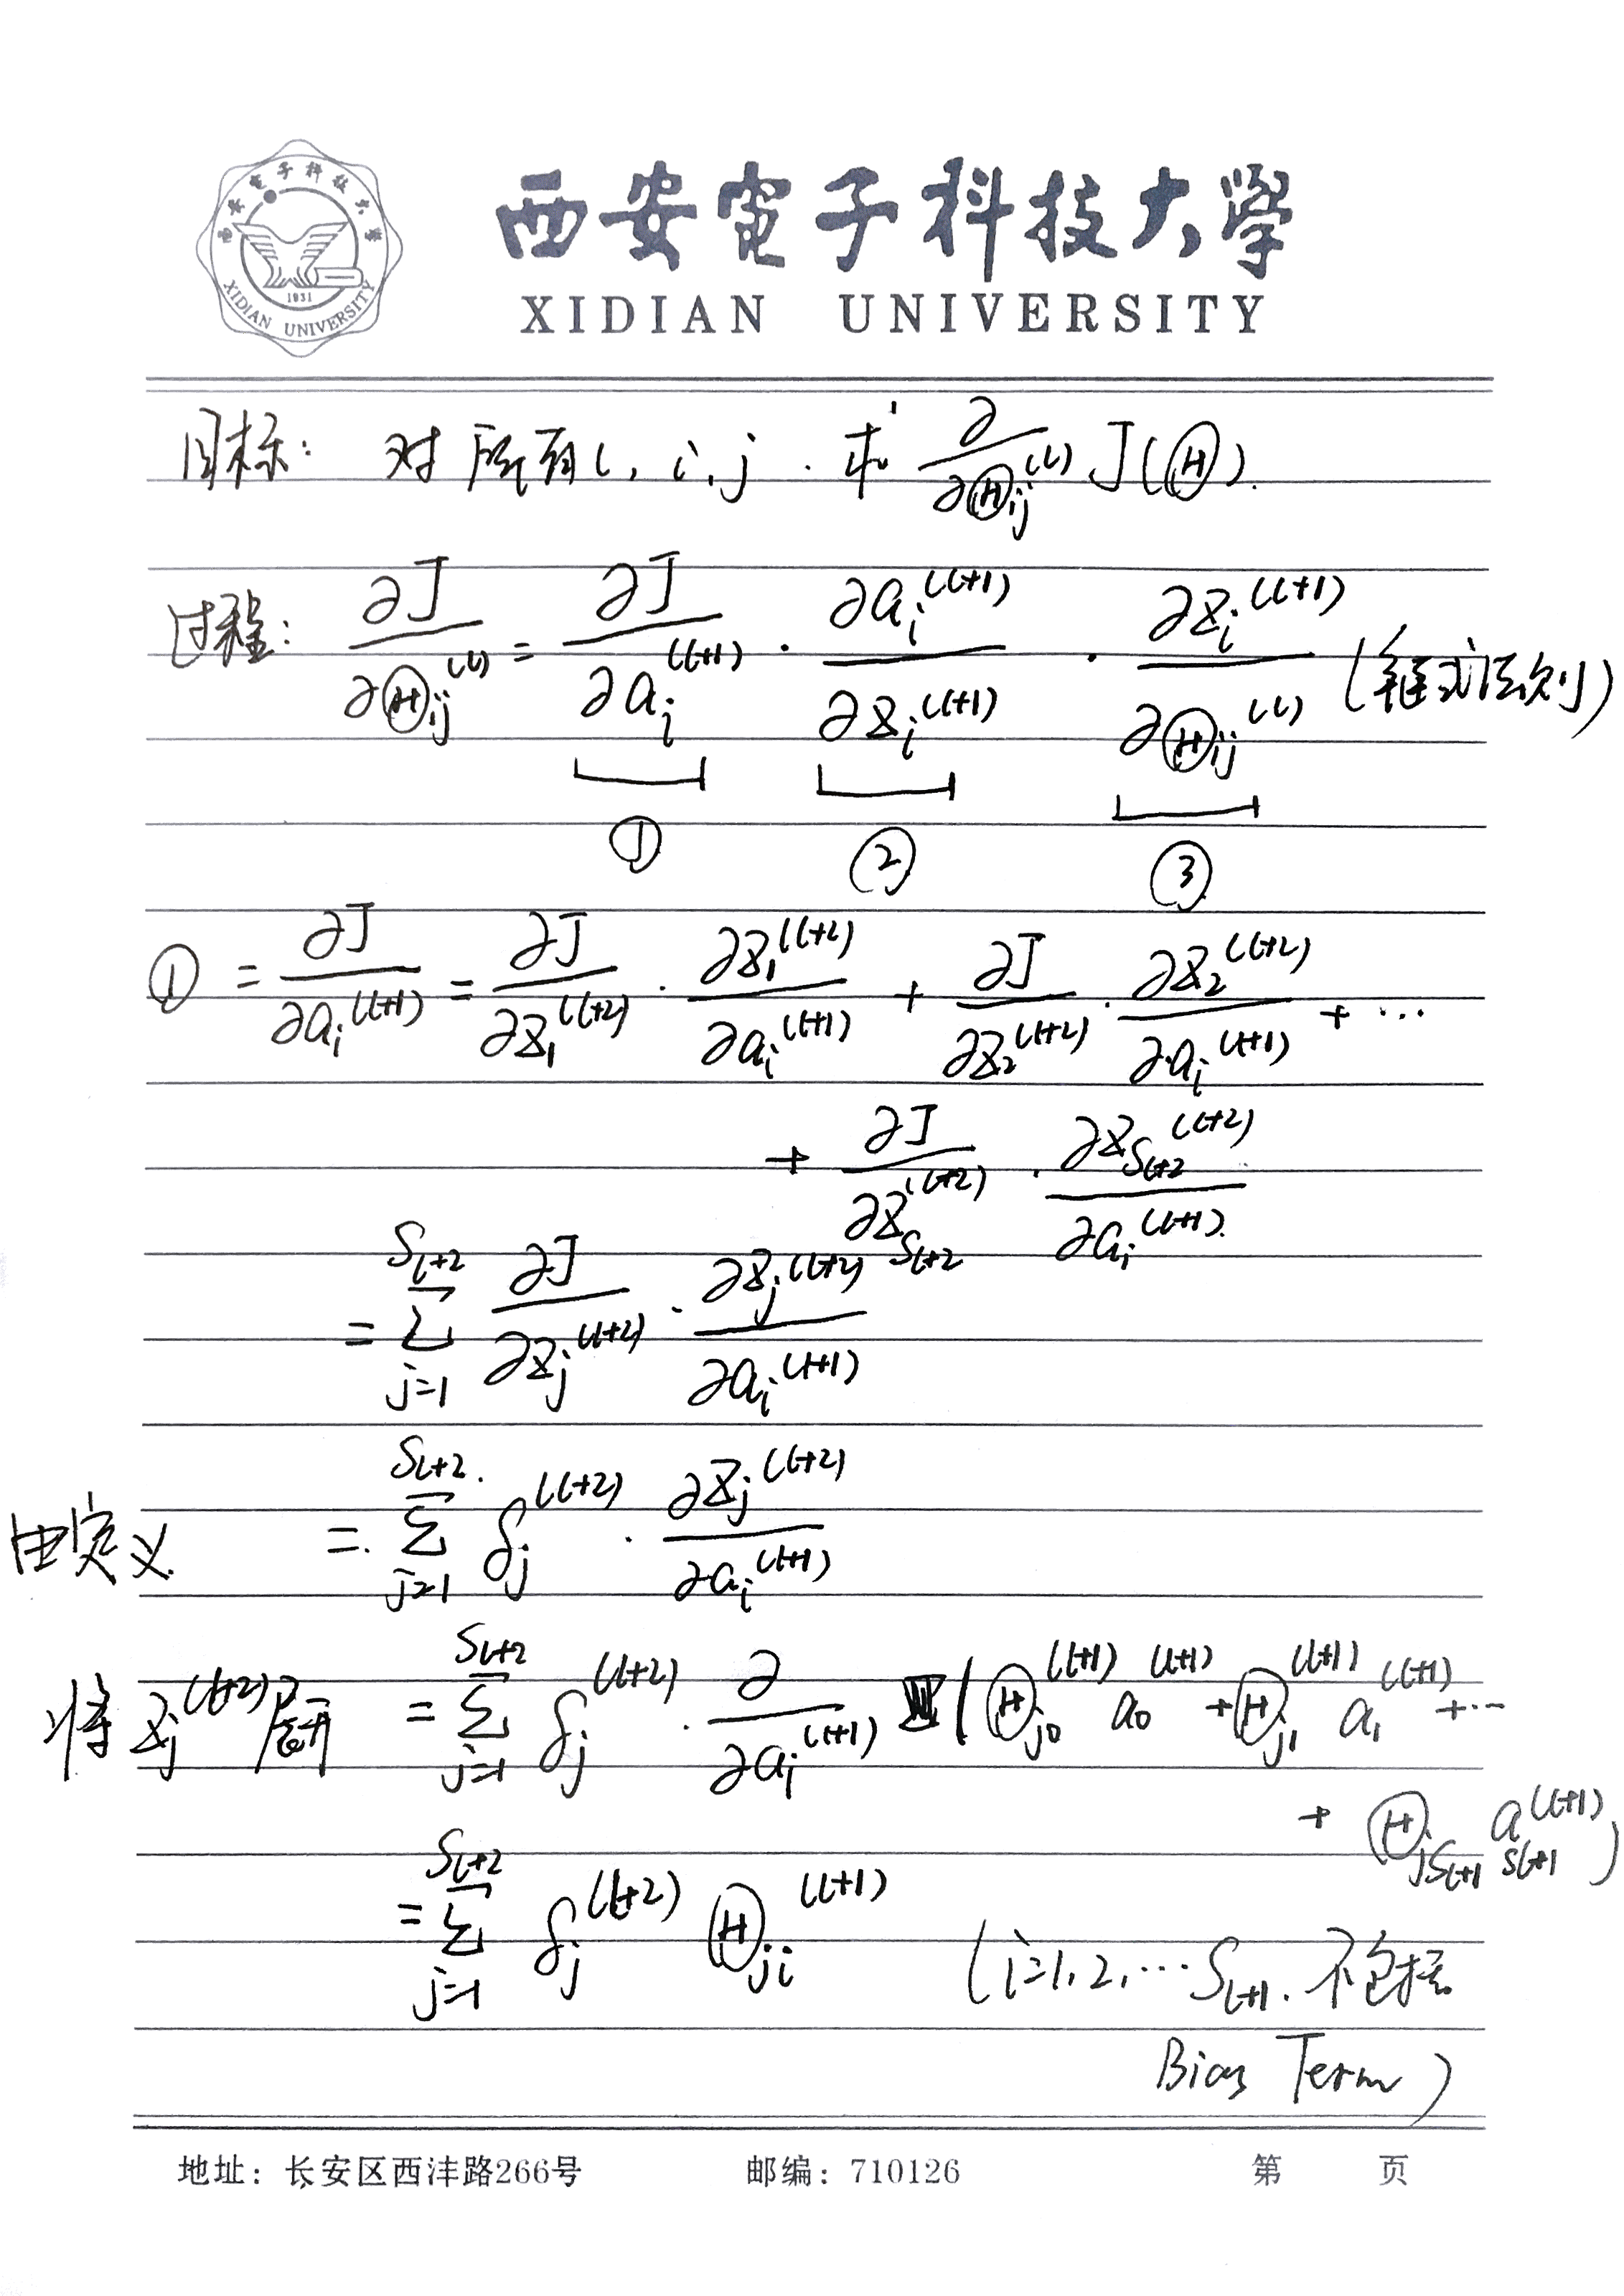 西安電子科技大學
西安電子科技大學
XIDIAN UNIVERSITY
1931
XIDIAN UNIVERSITY
目标: 对所有l, i, j. 求 ∂/∂Θij^(l) J(Θ).
过程: ∂J/∂Θij^(l) = ∂J/∂ai^(l+1) · ∂ai^(l+1)/∂zi^(l+1) · ∂zi^(l+1)/∂Θij^(l) (链式法则)
① ② ③
① = ∂J/∂ai^(l+1) = ∂J/∂z1^(l+2) · ∂z1^(l+2)/∂ai^(l+1) + ∂J/∂z2^(l+2) · ∂z2^(l+2)/∂ai^(l+1) + ···
+ ∂J/∂z_{Sl+2}^(l+2) · ∂z_{Sl+2}^(l+2)/∂ai^(l+1)
= Σ_{j=1}^{Sl+2} ∂J/∂zj^(l+2) · ∂zj^(l+2)/∂ai^(l+1)
由定义 = Σ_{j=1}^{Sl+2} δj^(l+2) · ∂zj^(l+2)/∂ai^(l+1)
将zj^(l+2)展开 = Σ_{j=1}^{Sl+2} δj^(l+2) · ∂/∂ai^(l+1) (Θj0^(l+1) a0^(l+1) + Θj1^(l+1) a1^(l+1) + ···
+ Θ_{jSl+1} a_{Sl+1}^(l+1))
= Σ_{j=1}^{Sl+2} δj^(l+2) Θji^(l+1) (i=1, 2, ··· Sl+1. 不包括
Bias Term)
地址: 长安区西沣路266号 邮编: 710126 第 页